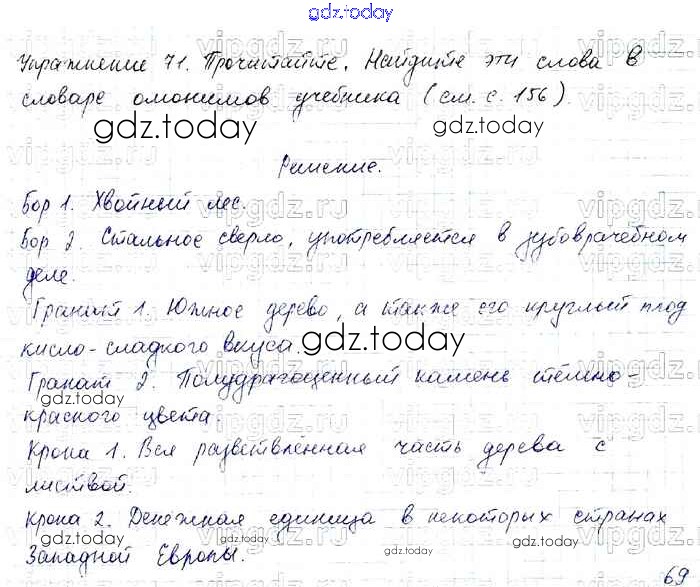 gdz.today
Упражнение 71. Прочитайте. Найдите эти слова в
словаре омонимов учебника (см. с. 156).
gdz.today gdz.today
Решение.
Бор 1. Хвойный лес.
Бор 2. Стальное сверло, употребляется в зубоврачебном
деле.
Гранат 1. Южное дерево, а также его круглый плод
кисло-сладкого вкуса.
gdz.today
Гранат 2. Полудрагоценный камень тёмно-
красного цвета
Крона 1. Вся разветвлённая часть дерева с
листвой.
Крона 2. Денежная единица в некоторых странах
gdz.today gdz.today gdz.today
Западной Европы.
69